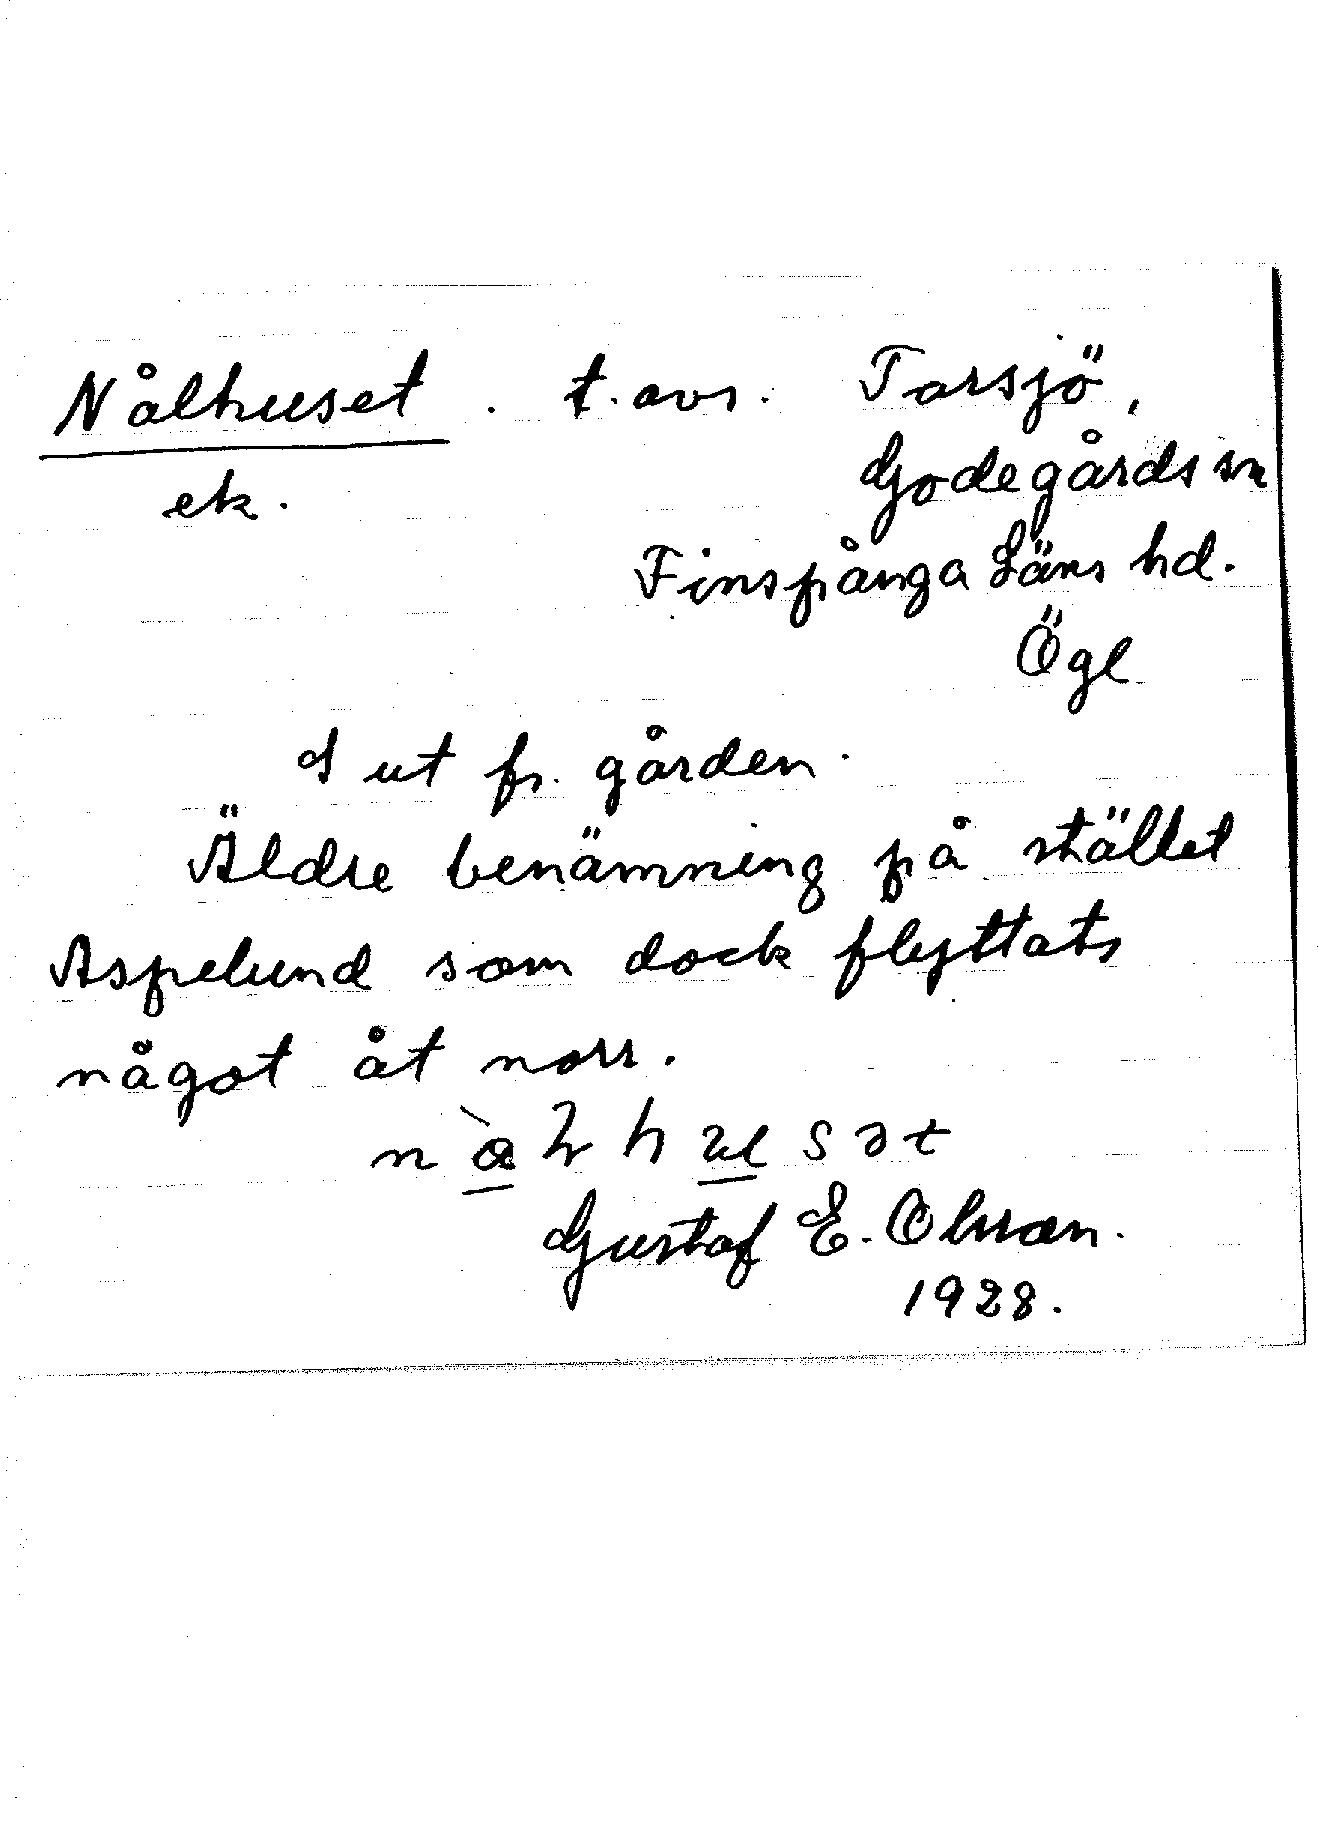 Nålhuset. t. avs. Torsjö,
ek. Godegårds sn
Finspånga Läns hd.
Ögl
S ut fr. gården.
Äldre benämning på stället
Aspelund som dock flyttats
något åt norr.
Gustaf E. Olsson.
1928.